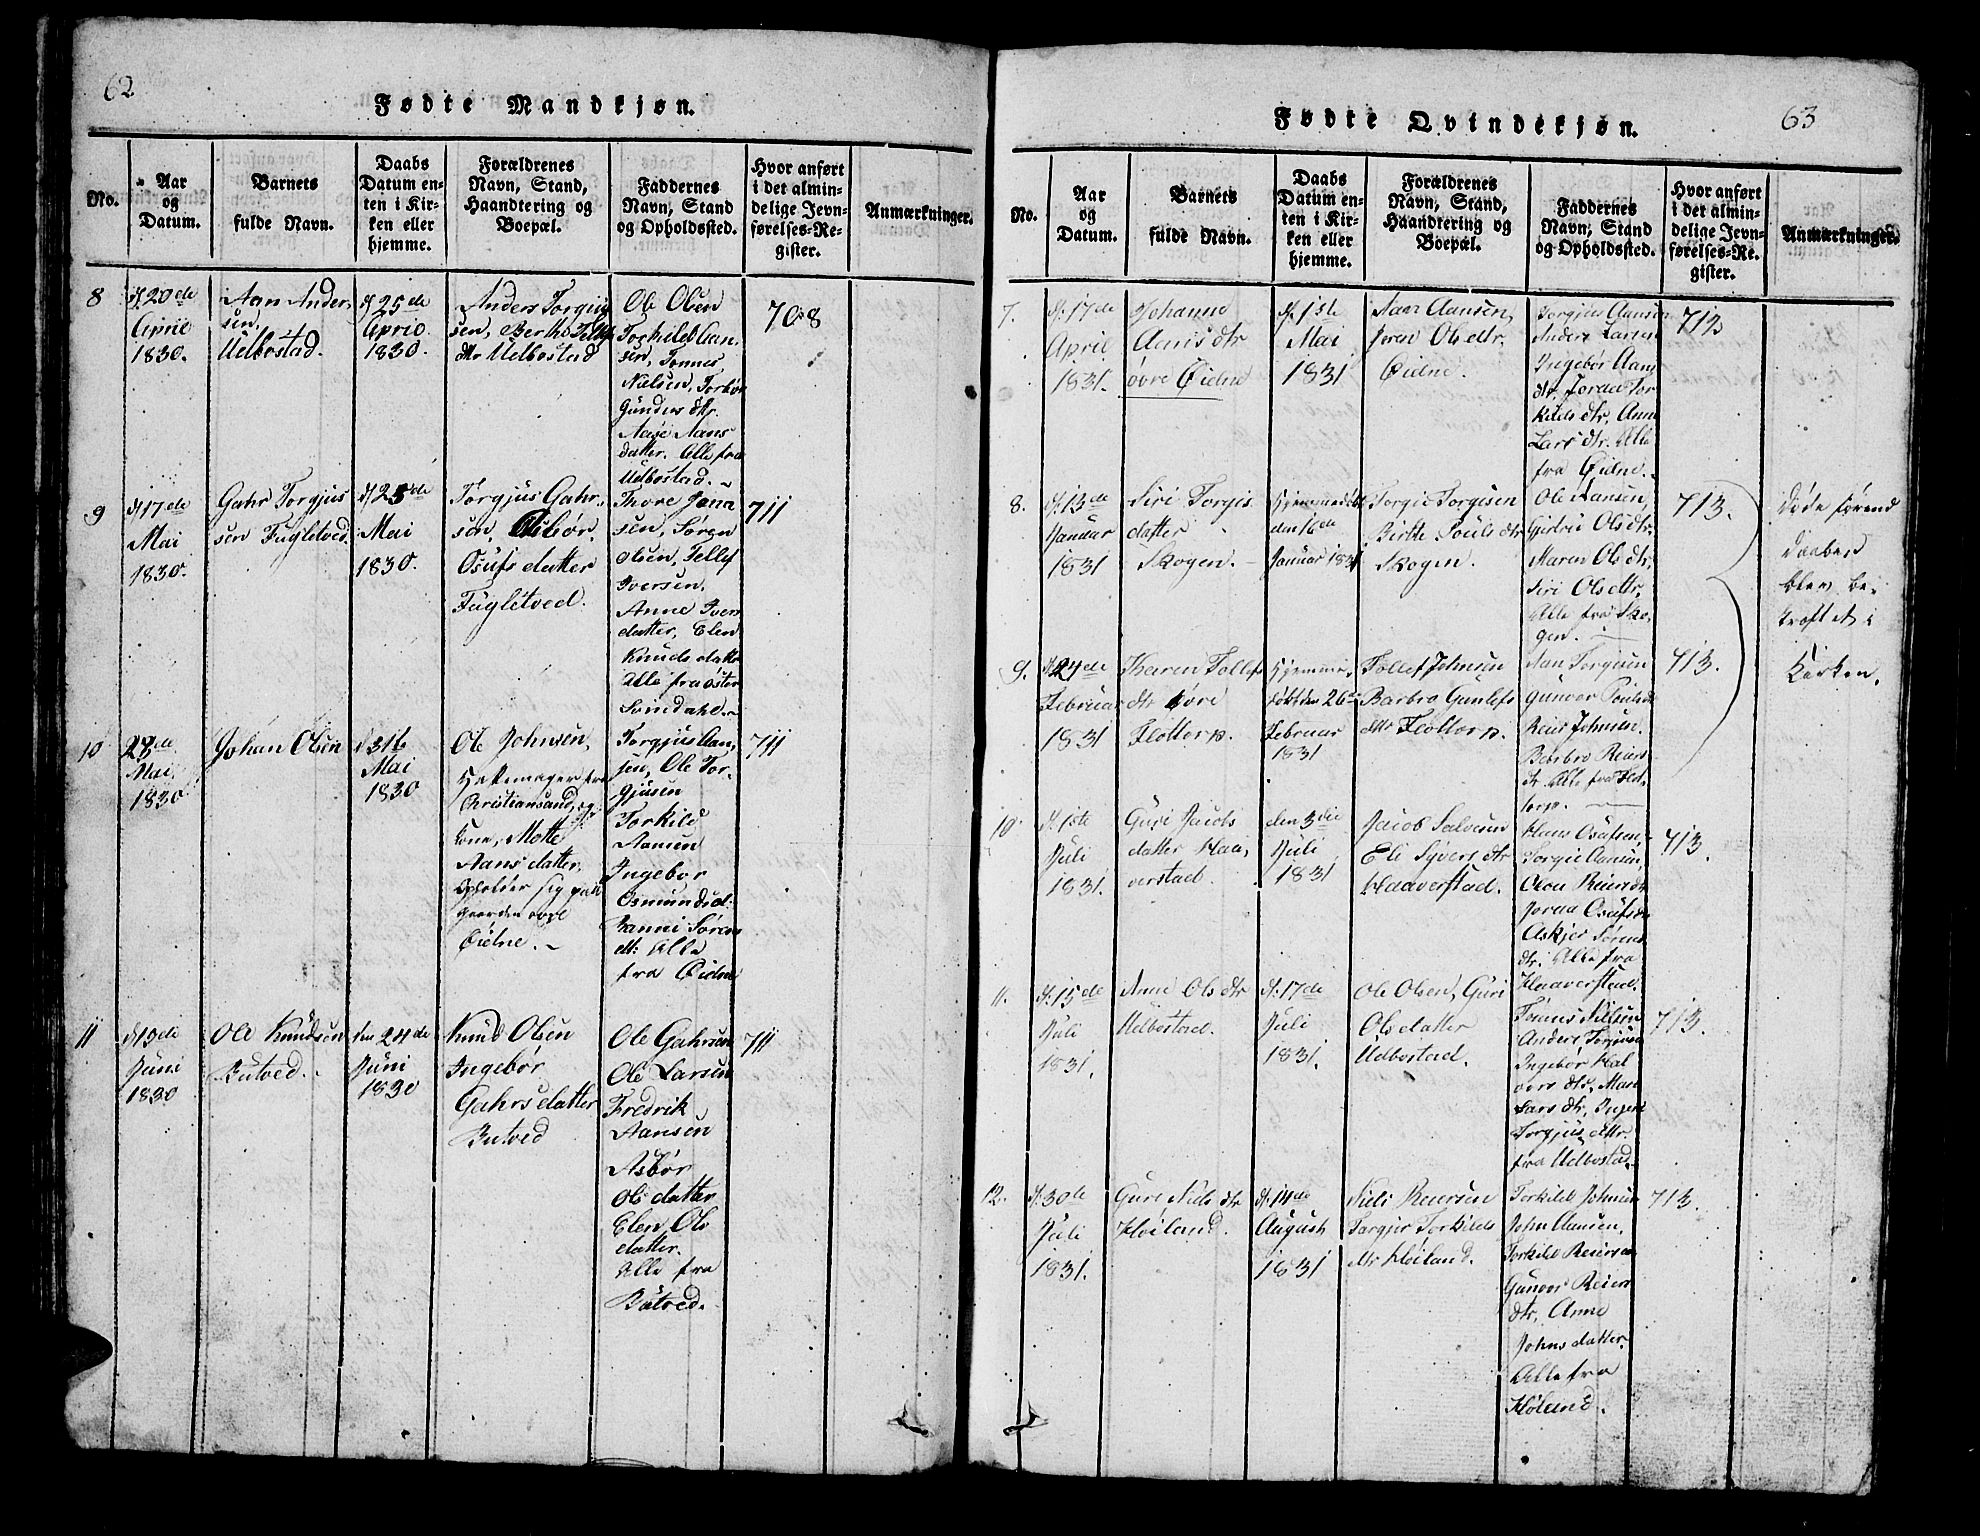 62
Fødte Mandkjøn.
No.
Aar
og
Datum.
Barnets
fulde Navn.
Daabs
Datum en-
ten i Kir-
ken eller
hjemme.
Forældrenes
Navn, Stand,
Haandtering og
Boepæl.
Faddernes
Navn, Stand
og Opholdssted.
Hvor anført
i det almin-
delige Jevn-
førelses-Re-
gister.
Anmærkninger.
8
d. 20de
April
1830.
Aan Ander-
sen.
Udbostad.
d. 25de
April
1830.
Anders Torgius
sen,
dtr Udbostad
Ole Olsen
Torkild Aan-
sen, Tønnes
Nielsen,
Gunders dtr.
Aase Aans
datter. Alle fra
Udbostad.
708
9
d. 17de
Mai
1830.
Gahr Torgjus
sen Fugletved.
d. 25de
Mai
1830.
Torgjus Gahr-
sen,
Osufs datter
Fugletved.
Thore Jona
sen, Søren
Olsen, Tellef
Iversen,
Anne Ivers
datter, Elen
Knuds datr
Alle fra øster
Svindahl.
711
10
28de
Mai
1830
Johan Olsen
d. 31te
Mai
1830
Ole Johnsen,
Christiansand, og
Kone, Motte
Aans datter,
opholder sig paa
gaarden øvre
Øidne.
Torgjus Aan,
sen, Ole Tor-
gjusen
Torkild
Aansen
Ingebor
Osmunds d.
Søren
dtr. Alle
fra Øidne
711
11
d. 19de
Juni
1830
Ole Knudsen
Butved.
den 24de
Juni
1830
Knud Olsen
Ingebør
Gahrs datter
Butved
Ole Gahrsen
Ole Larsen
Fredrik
Aansen
Asbør
Ols datter
Elen Ols
datter.
Alle fra
Butved.
711
63
Fødte Qvindekjøn.
No.
Aar
og
Datum.
Barnets
fulde Navn.
Daabs
Datum en-
ten i Kir-
ken eller
hjemme.
Forældrenes
Navn, Stand,
Haandtering og
Boepæl.
Faddernes
Navn, Stand
og Opholdssted.
Hvor anført
i det almin-
delige Jevn-
førelses-Re-
gister.
Anmærkninger.
7.
d. 17de
April
1831.
Johanne
Aans dtr
øvre Øidne
d. 1ste
Mai
1831
Aan Aansen,
Joran Ols dtr.
Øidne.
Torgius Aansen
Anders Larsen
Ingebør Aans
dtr. Joraa Tor
kilds dtr. Anne
Lars dtr. Alle
fra Øidne.
713
8.
d. 13de
Januar
1831
Siri Torgis
datter
Skogen.
hjemmedøbt
den 16de
Januar 1831
Torgie Torgisen
Birthe Pouls dtr
Skogen.
Ole Hansen,
Ols dtr.
Maren Ols dtr,
Siri Ols dtr.
Alle fra Sko,
gen.
713.
døde førend
daaben
blev be-
kræftet i
Kirken.
9.
d. 24de
Februar
1831
Karen Tollefs
dtr øvre
Flottorp.
hjemme,
døbt den 26de
Februar
1831
Tollef Johnsen
Barbro Gunlefs
dtr Flottorp.
Aan Torgisen
Gunvor Pouls dtr
Reier Johnsen.
Berbro Reiers
dtr. Alle fra Flot-
torp.
713.
10.
d. 1ste
Juli
1831.
Guri Jacobs
datter Haa,
verstad.
den 3die
Juli
1831
Jacob Salvesen
Eli Syvers dtr
Haaverstad.
Hans Osufsen,
Torgie Aansen,
Olou Reiers dtr
Joraa Osufs dtr
Askjer Sørens
dtr. Alle fra
Haaverstad.
713.
11.
d. 15de
Juli
1831.
Anne Ols dtr
Udbostad.
d. 17de
Juli
1831.
Ole Olsen, Guri
Ols datter
Udbostad.
Tønnes Nielsen
Anders Torgiusen
Ingebør Hal
vors dtr. Mari
Lars dtr, Inger
Torgjus dtr.
fra Udbostad.
713.
12.
d. 30de
Juli
1831.
Guri Niels dtr
Høiland.
d. 14de
August
1831
Niels Reiersen
Targjer Torkilds
dtr Høiland.
Torkild Johnsen
John Aansen,
Torkild Reiersen
Gunvor Reiers
dtr, Anne
Johns datter.
Alle fra
Høiland.
713.